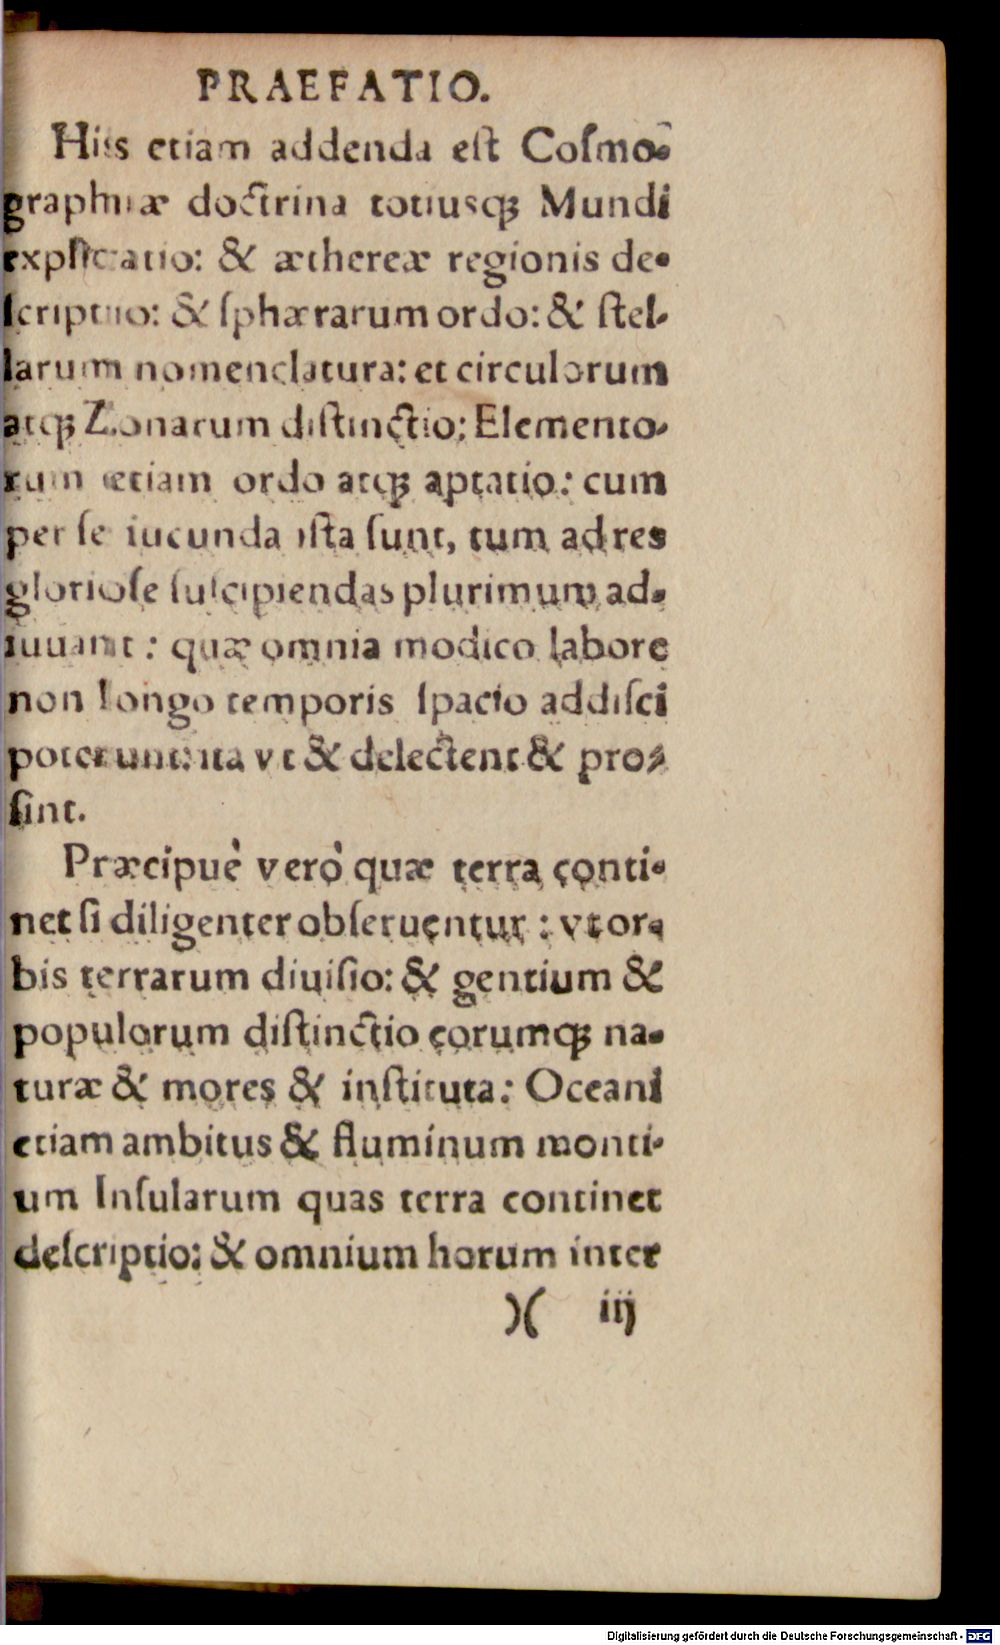 PRAEFATIO.
His etiam addenda est Cosmo-
graphiæ doctrina totiusq; Mundi
explicatio: & æthereæ regionis de-
scriptio: & sphærarum ordo: & stel-
larum nomenclatura: et circulorum
atq; Zonarum distinctio: Elemento-
rum etiam ordo atq; aptatio: cum
per se iucunda ista sunt, tum ad res
gloriose suscipiendas plurimum ad-
iuuant: quæ omnia modico labore
non longo temporis spacio addisci
poterunt: ita vt & delectent & pro-
sint.
Præcipuè verò quæ terra conti-
net si diligenter obseruentur: vt or-
bis terrarum diuisio: & gentium &
populorum distinctio eorumq; na-
turæ & mores & instituta: Oceani
etiam ambitus & fluminum monti-
um Insularum quas terra continet
descriptio: & omnium horum inter
)( iij
Digitalisierung gefördert durch die Deutsche Forschungsgemeinschaft - DFG